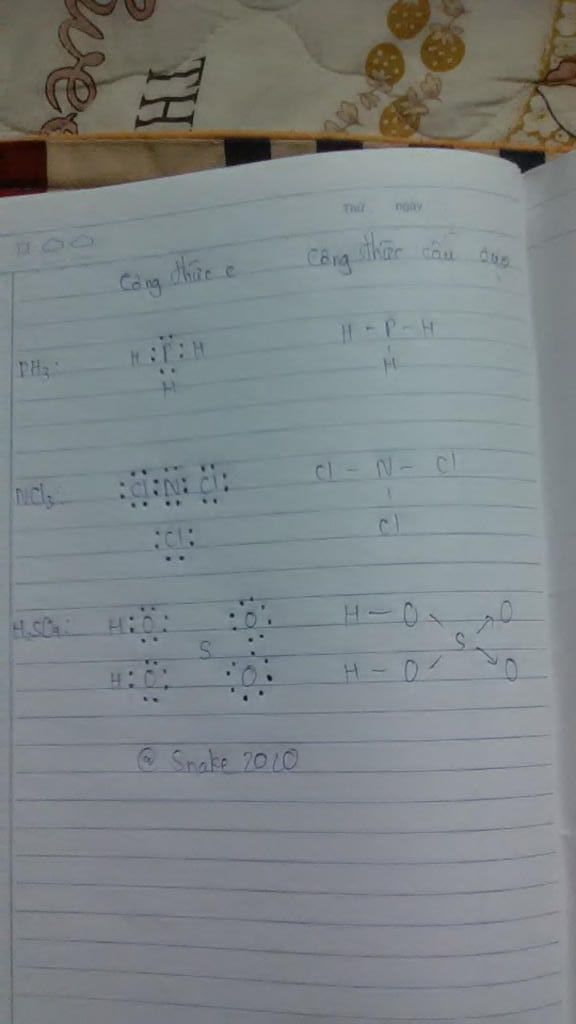 ive
TH
Thứ ngày
Công thức e Công thức cấu tạo
PH3: H :P: H H - P - H
H H
NCl3: :Cl:N: Cl: Cl - N - Cl
:Cl: Cl
H2SO4: H:O: :O: H - O S O
S
H:O: :O: H - O O
@ Snake 2020